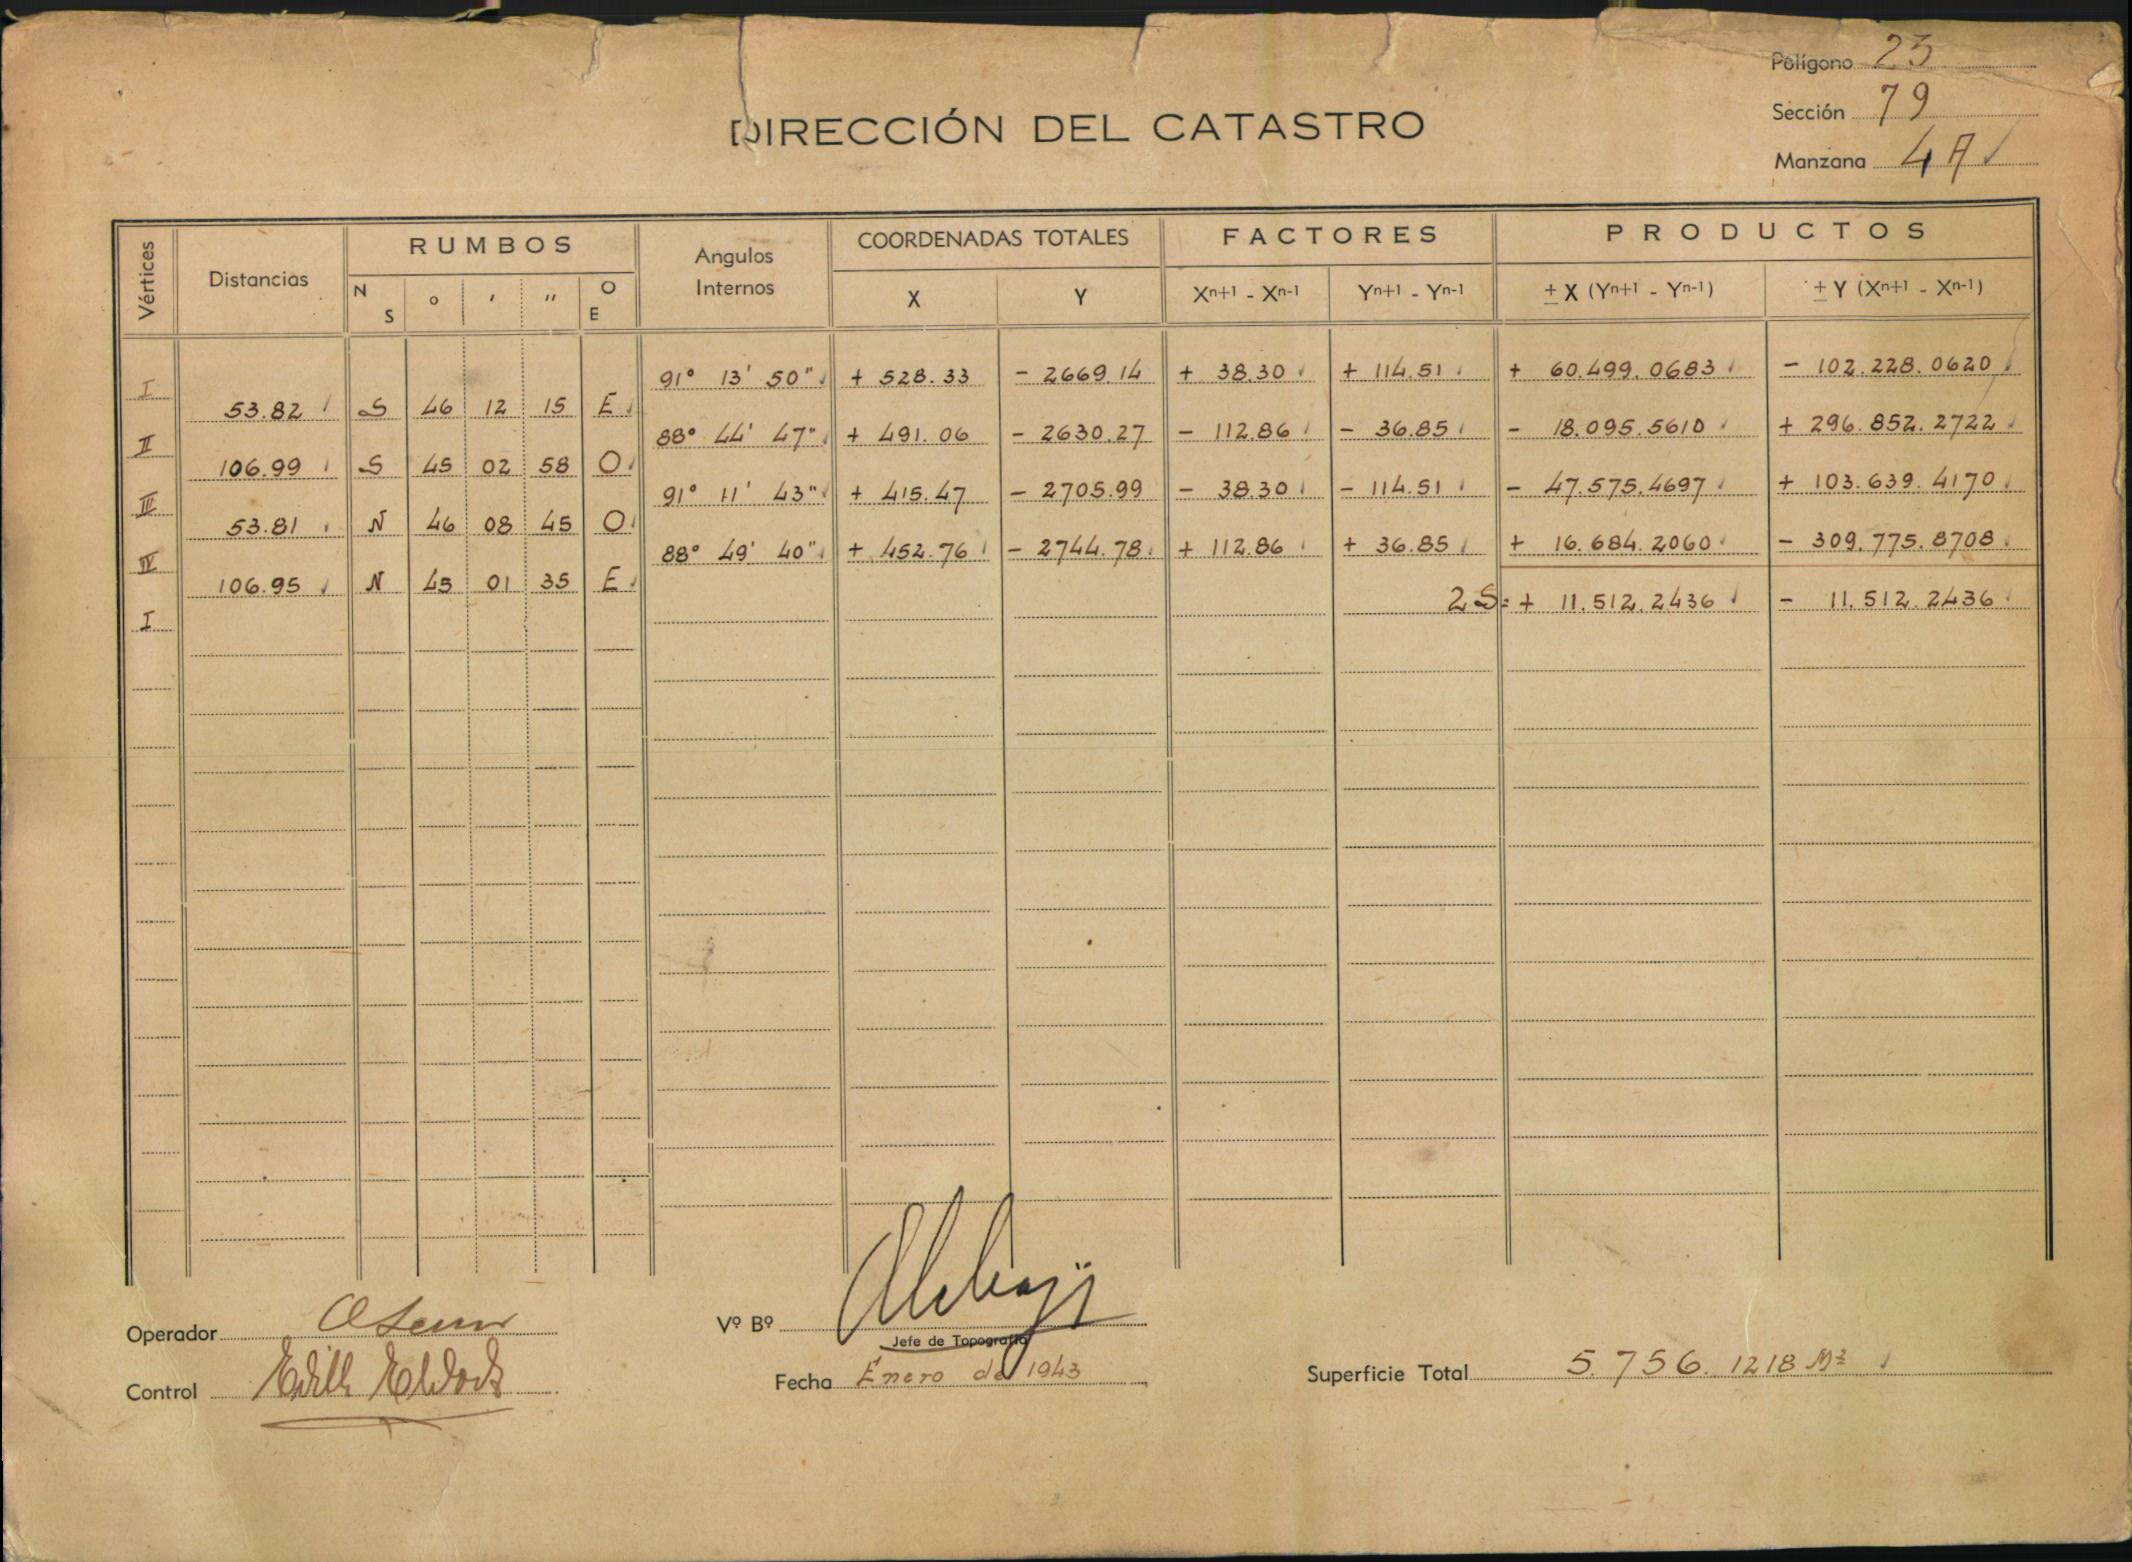 Polígono 23
DIRECCIÓN DEL CATASTRO
Sección 79
Manzana 4A
Vértices Distancias RUMBOS Angulos Internos COORDENADAS TOTALES FACTORES PRODUCTOS
N S ° ' " O E X Y Xn+1 - Xn-1 Yn+1 - Yn-1 ± X (Yn+1 - Yn-1) ± Y (Xn+1 - Xn-1)
I 91° 13' 50" + 528.33 - 2669.14 + 38.30 + 114.51 + 60.499.0683 - 102.228.0620
53.82 S 46 12 15 E
II 88° 44' 47" + 491.06 - 2630.27 - 112.86 - 36.85 - 18.095.5610 + 296.852.2722
106.99 S 45 02 58 O
III 91° 11' 43" + 415.47 - 2705.99 - 38.30 - 114.51 - 47.575.4697 + 103.639.4170
53.81 N 46 08 45 O
IV 88° 49' 40" + 452.76 - 2744.78 + 112.86 + 36.85 + 16.684.2060 - 309.775.8708
106.95 N 45 01 35 E
2S = + 11.512.2436 - 11.512.2436
I
Operador
Vº Bº
Jefe de Topografía
Control Edith
Fecha Enero de 1943
Superficie Total 5.756.1218 M²